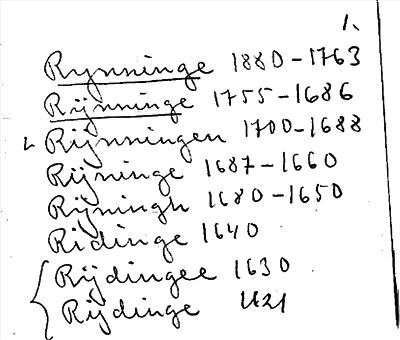 1.
Rynninge 1880-1763
Rijnninge 1755-1686
Rijnningen 1700-1688
Rijninge 1687-1660
Rijningh 1680-1650
Ridinge 1640
Rijdingee 1630
Rijdinge 1621